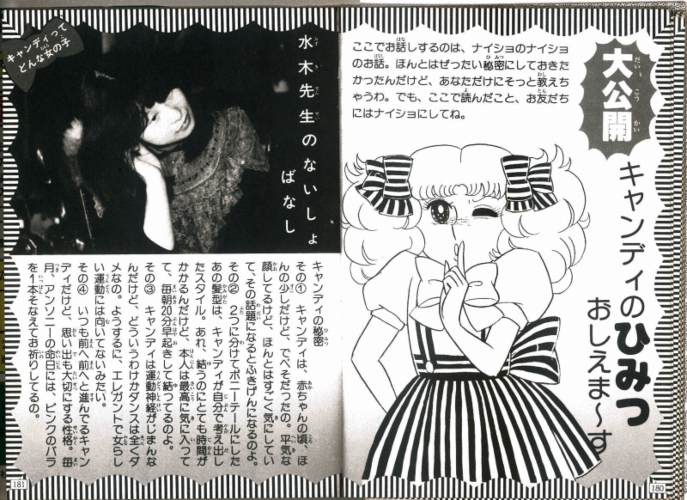 大公開
キャンディのひみつ
おしえま〜す
ここでお話しするのは、ナイショのナイショ
のお話。ほんとはぜったい秘密にしておきた
かったんだけど、あなただけにそっと教えち
ゃうわ。でも、ここで読んだこと、お友だち
にはナイショにしてね。
180
キャンディって
どんな女の子
水木先生のないしょ
ばなし
キャンディの秘密
その① キャンディは、赤ちゃんの頃、ほ
んの少しだけど、でべそだったの。平気な
顔してるけど、ほんとはすごく気にしてい
て、その話題になるとふきげんになるのよ。
その② 2つに分けてポニーテールにした
あの髪型は、キャンディが自分で考え出し
たスタイル。あれ、結うのにとても時間が
かかるんだけど、本人は最高に気に入って
て、毎朝20分早起きして結ってるのよ。
その③ キャンディは運動神経がじまんな
んだけど、どういうわけかダンスは全くダ
メなの。ようするに、エレガントで女らし
い運動には向いてないみたい。
その④ いつも前へ前へと進んでるキャン
ディだけど、思い出も大切にする性格。毎
月、アンソニーの命日には、ピンクのバラ
を1本そなえてお祈りしてるの。
181